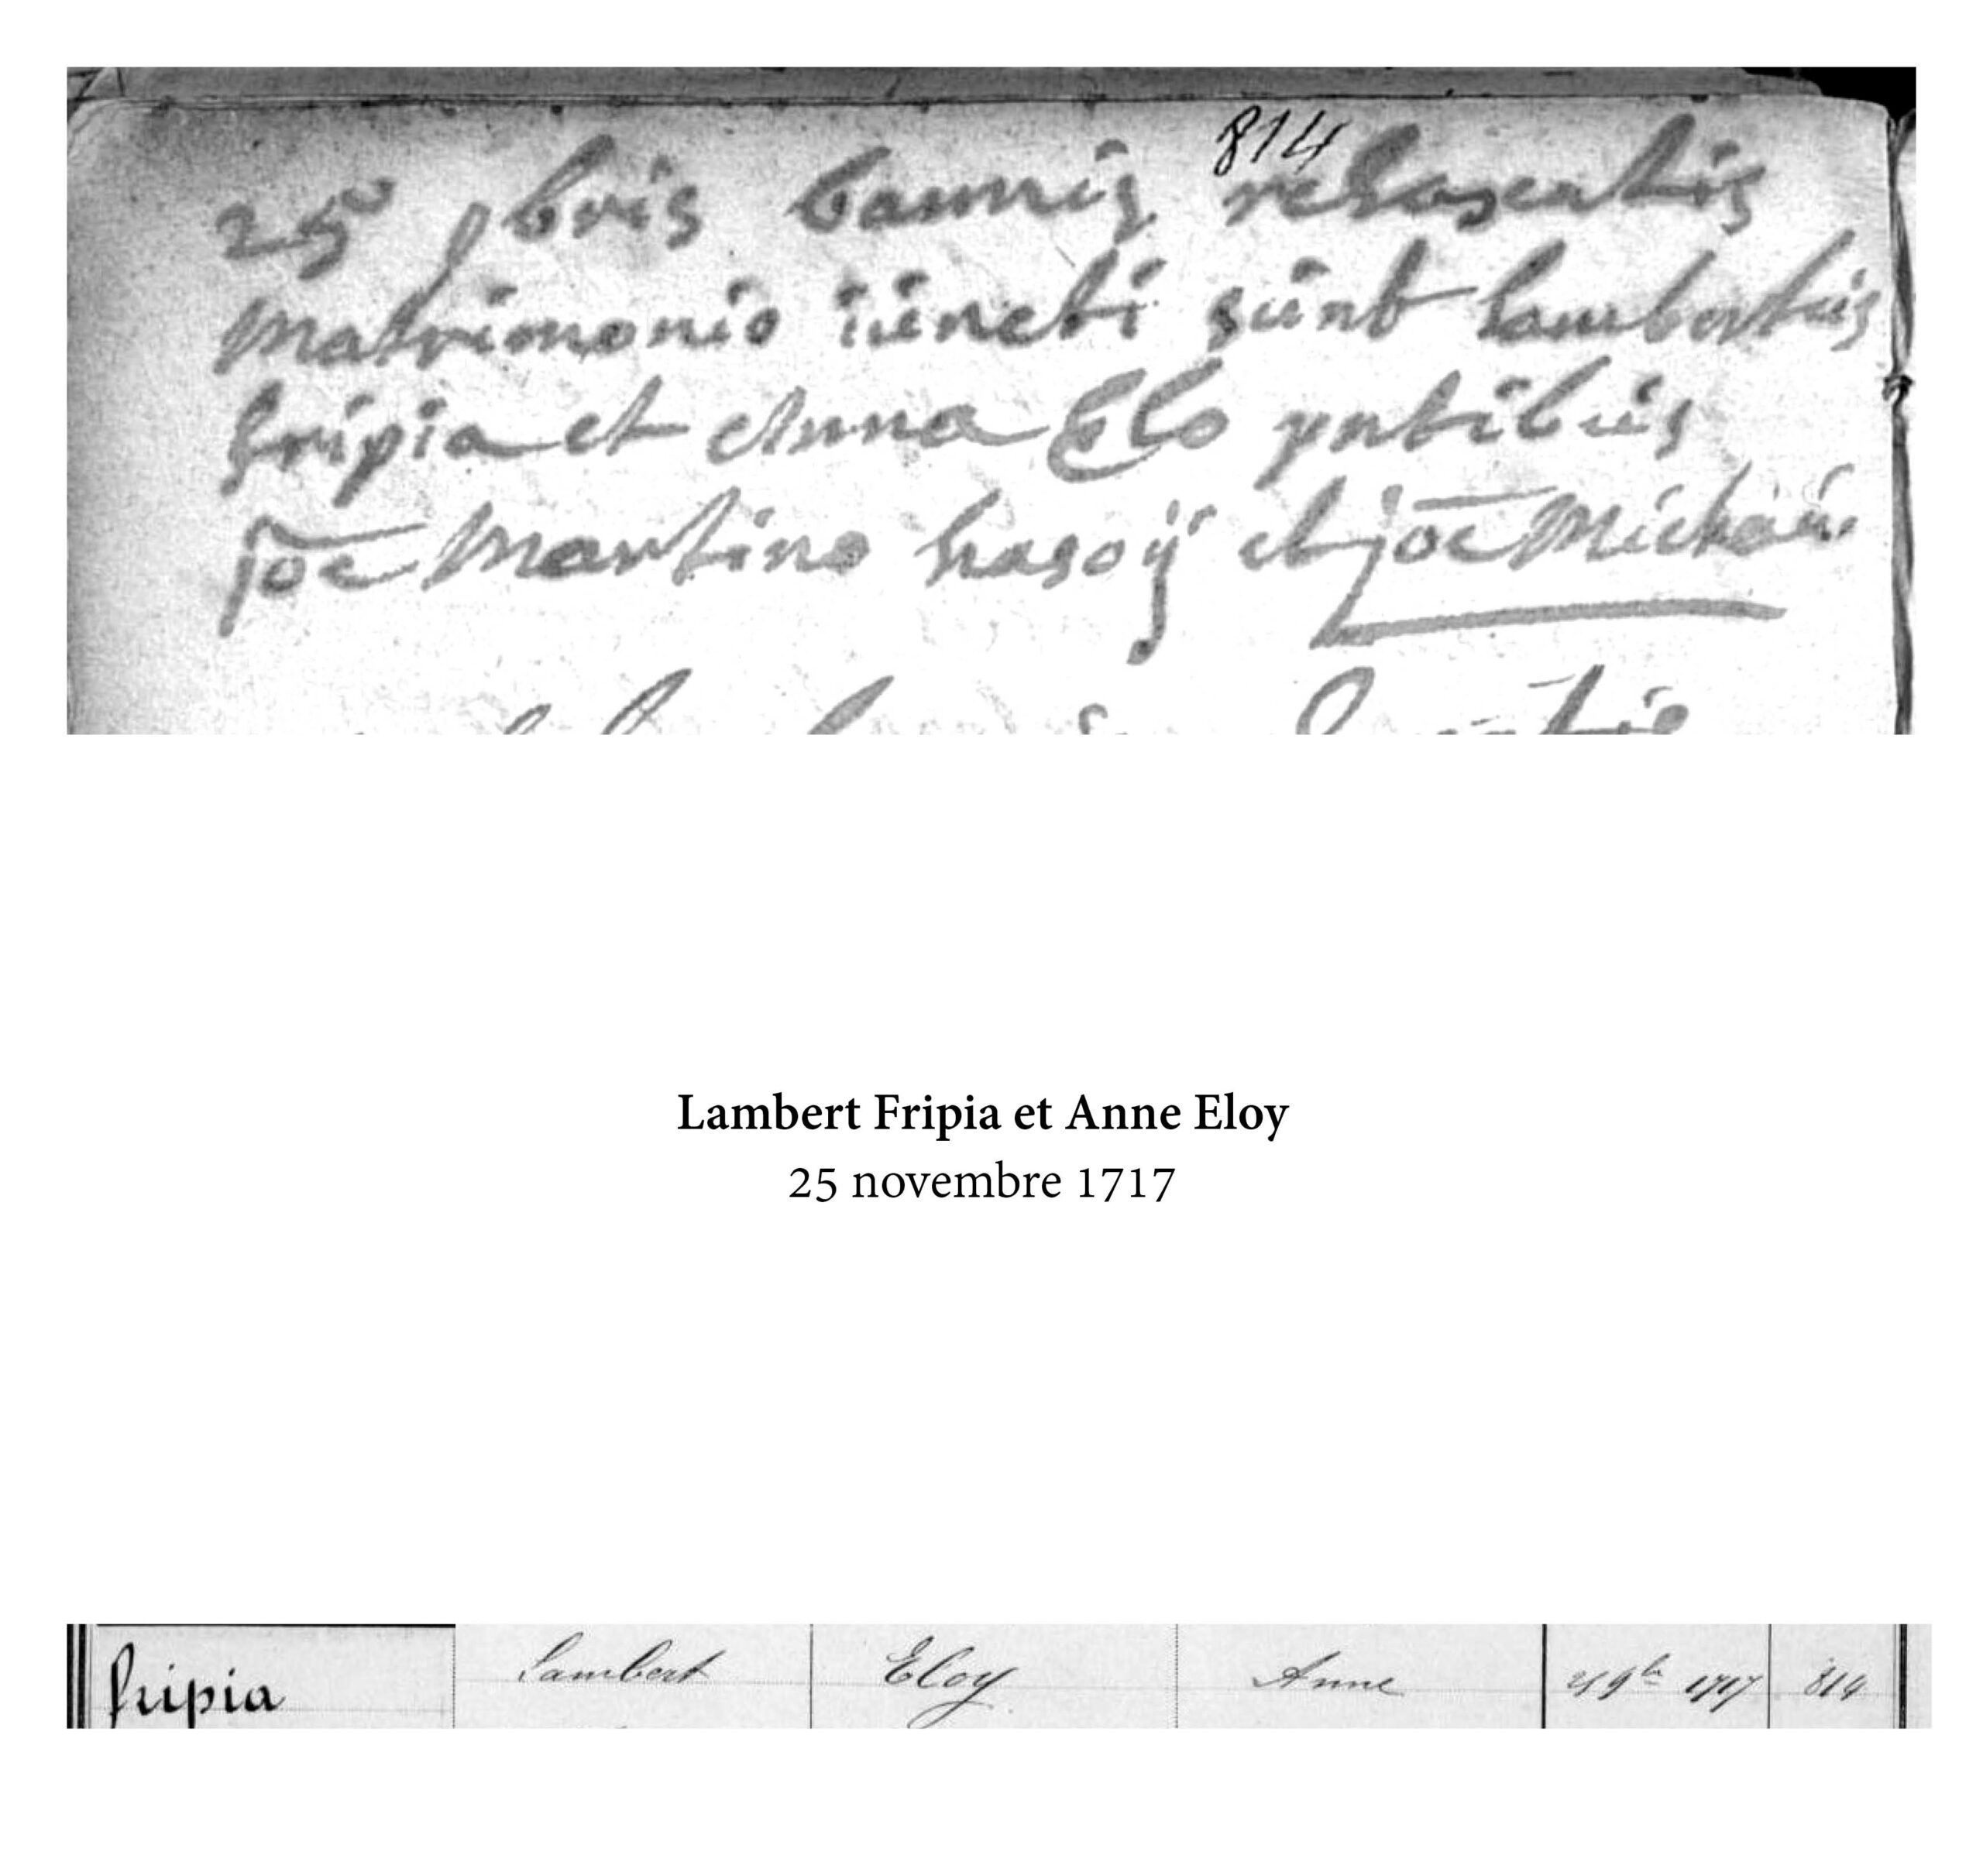 814
25 9bris bannis relaxatis
Matrimonio iuncti sunt Lambertus
fripia et Anna Elo pntibus
joe Martino hasoÿ et joe
Lambert Fripia et Anne Eloy
25 novembre 1717
fripia Lambert Eloy Anne 9b 1717 814